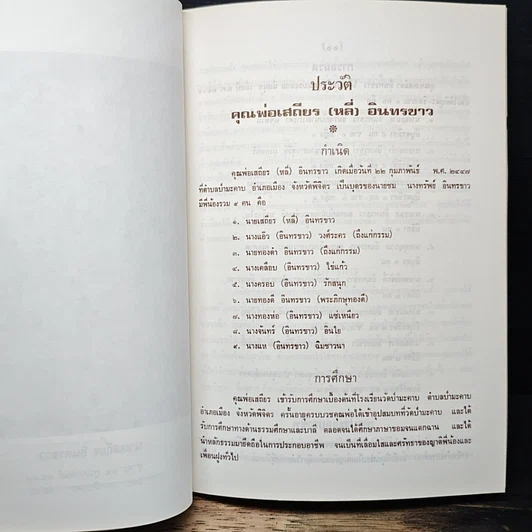 ประวัติ
คุณพ่อเสถียร (หลี่) อินทรขาว
กำเนิด
คุณพ่อเสถียร (หลี่) อินทรขาว เกิดเมื่อวันที่ ๒๒ กุมภาพันธ์ พ.ศ. ๒๔๔๗
ที่ตำบลป่ามะคาบ อำเภอเมือง จังหวัดพิจิตร เป็นบุตรของนายชม นางทรัพย์ อินทรขาว
มีพี่น้องรวม ๙ คน คือ
๑. นายเสถียร (หลี่) อินทรขาว
๒. นางแอ๊ว (อินทรขาว) วงศ์ระคร (ถึงแก่กรรม)
๓. นายทองดำ อินทรขาว (ถึงแก่กรรม)
๔. นางเคลือบ (อินทรขาว) ไข่แก้ว
๕. นางครอบ (อินทรขาว) รักสนุก
๖. นายทองดี อินทรขาว (พระภิกษุทองดี)
๗. นางทองห่อ (อินทรขาว) แซ่เหนียว
๘. นางจันทร์ (อินทรขาว) อินโย
๙. นางแห (อินทรขาว) ฉิมชาวนา
การศึกษา
คุณพ่อเสถียร เข้ารับการศึกษาเบื้องต้นที่โรงเรียนวัดป่ามะคาบ ตำบลป่ามะคาบ
อำเภอเมือง จังหวัดพิจิตร ครั้นอายุครบบวชคุณพ่อได้เข้าอุปสมบทที่วัดป่ามะคาบ และได้
รับการศึกษาทางด้านธรรมศึกษาและบาลี ตลอดจนได้ศึกษาภาษาขอมจนแตกฉาน และได้
นำหลักธรรมมายึดถือในการประกอบอาชีพ จนเป็นที่เลื่อมใสและศรัทธาของญาติพี่น้องและ
เพื่อนฝูงทั่วไป